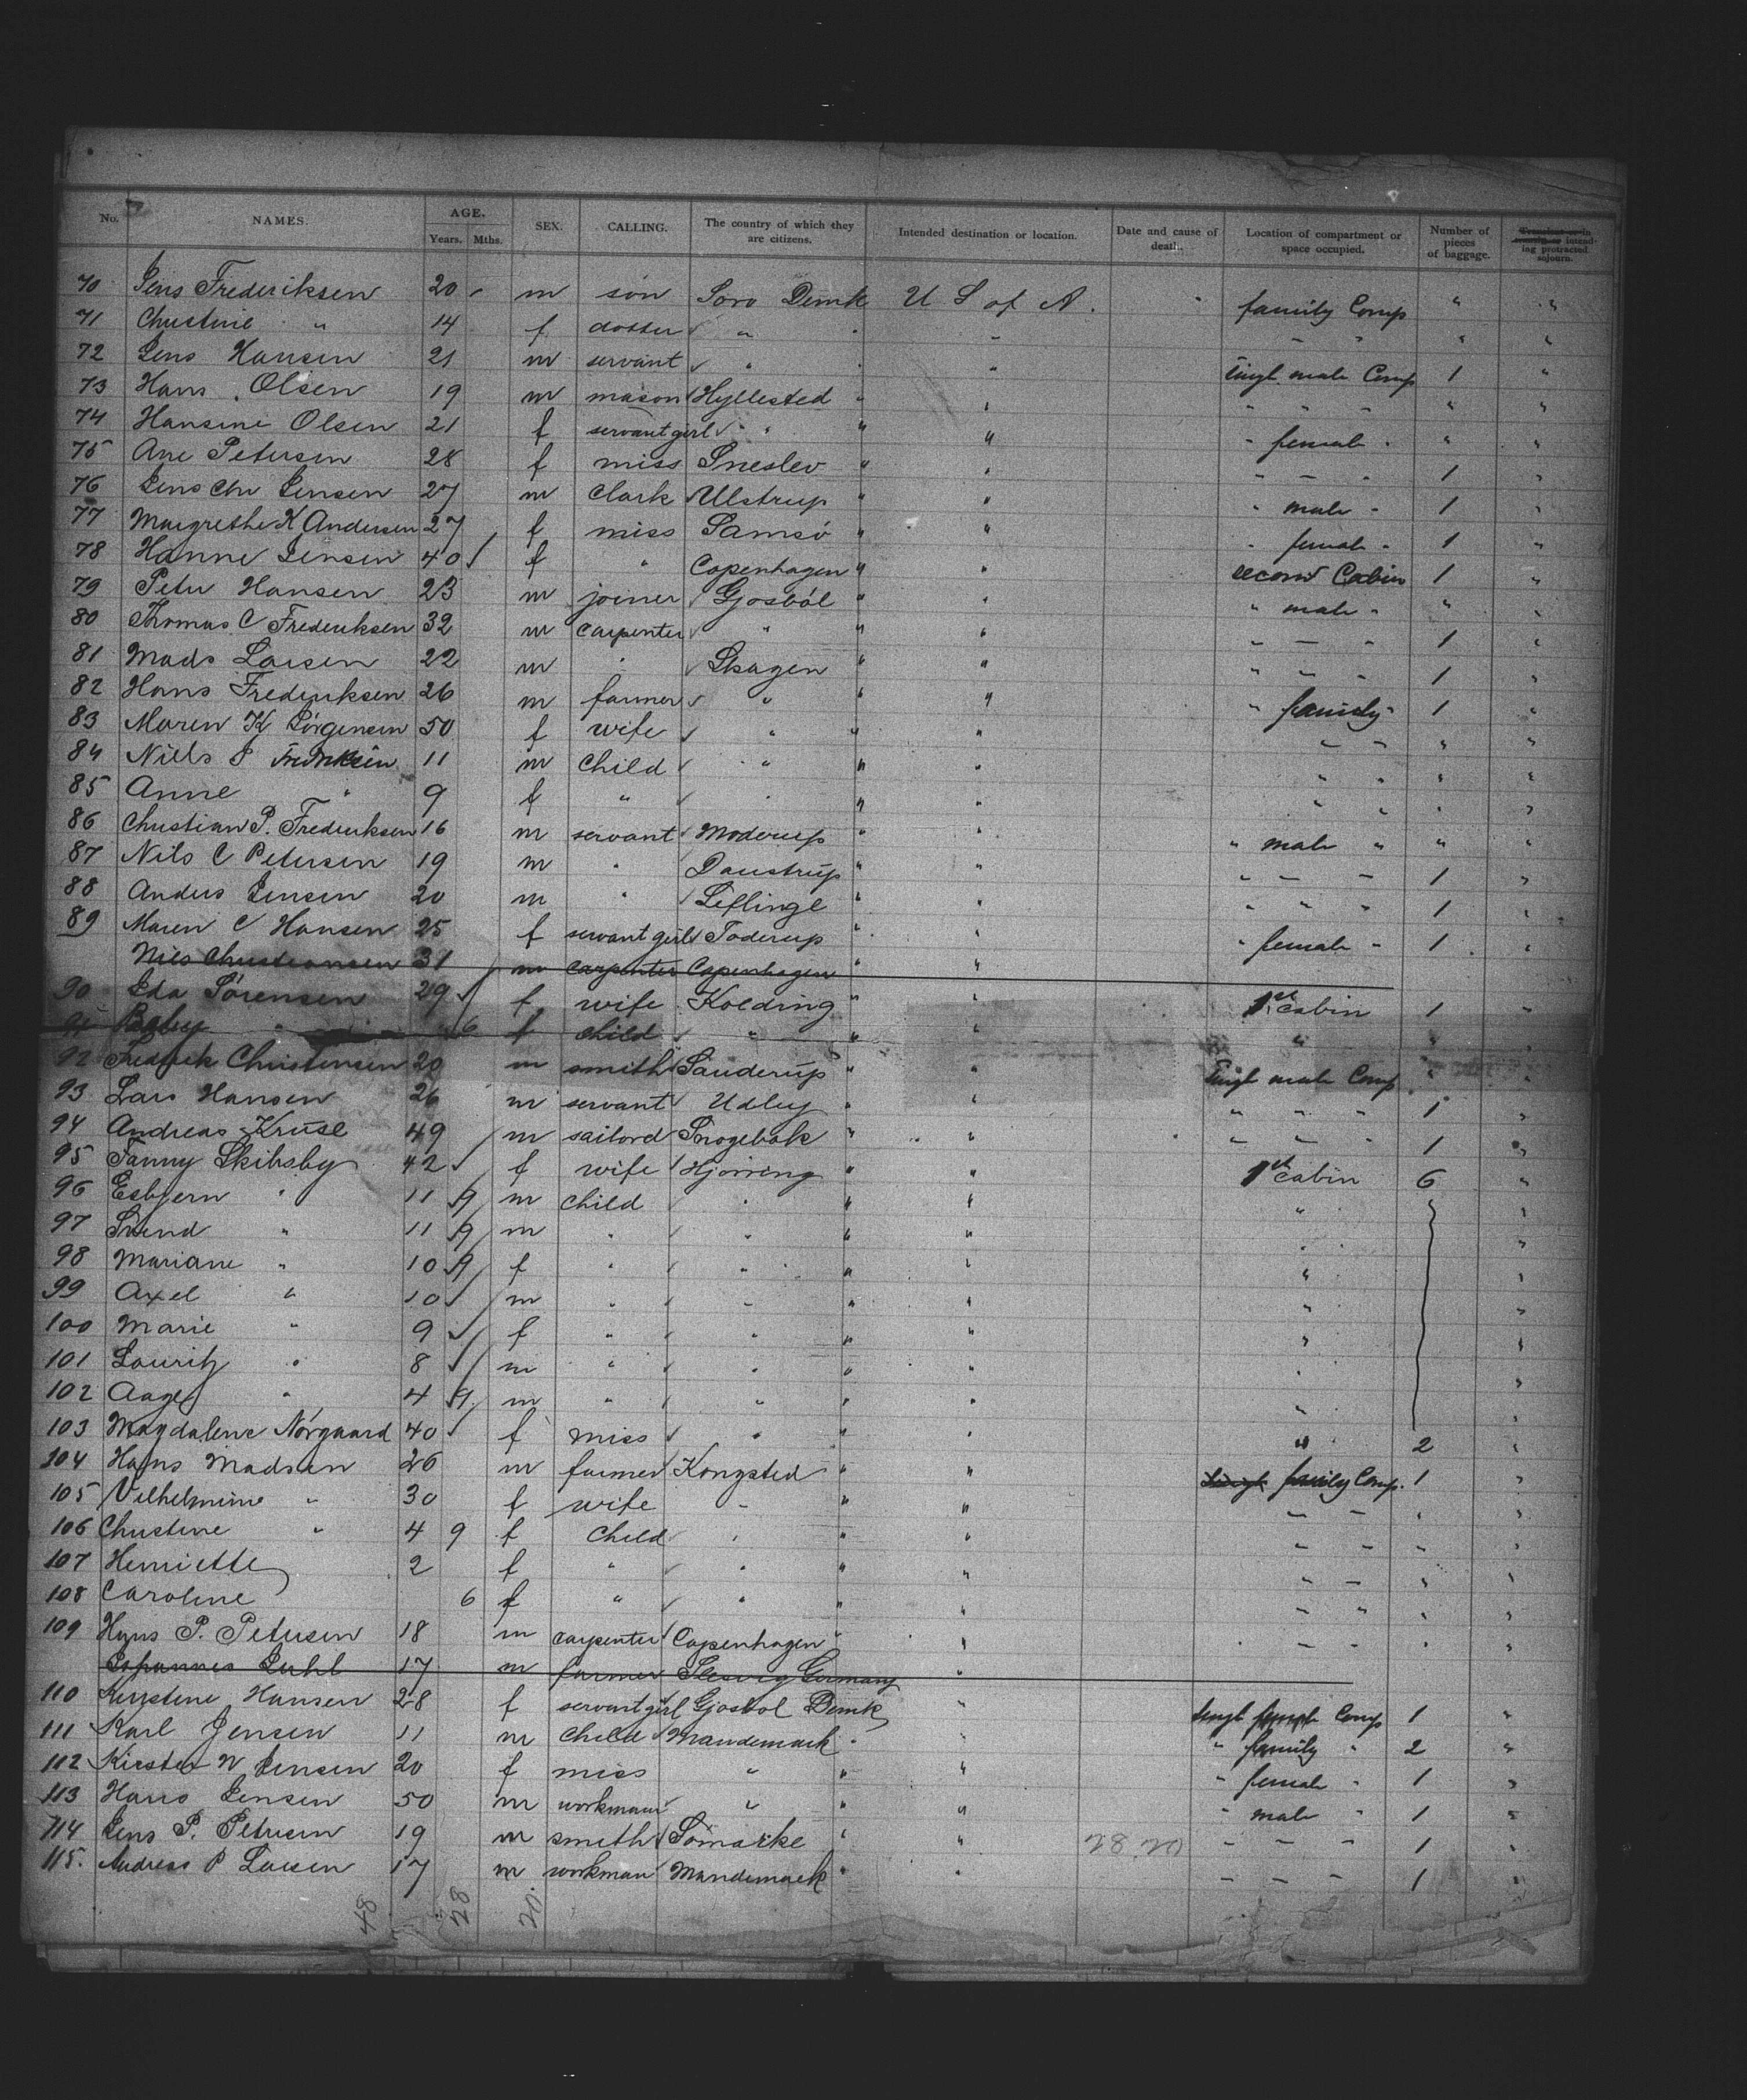 No. NAMES. AGE. Years. Mths. SEX. CALLING. The country of which they are citizens. Intended destination or location. Date and cause of death. Location of compartment or space occupied. Number of pieces of baggage. Transient or in transit or intending protracted sojourn.
70 Jens Frederiksen 20 m son Soro Denmk U S of A. family Comp " "
71 Christine " 14 f dotter " " " " " "
72 Jens Hansen 21 m servant " " Singl male Comp 1 "
73 Hans Olsen 19 m mason Hyllested " " " " " " "
74 Hansine Olsen 21 f servant girl " " " " female " " "
75 Ane Petersen 28 f miss Sneslev " " " " " 1 "
76 Jens Chr Jensen 27 m Clark Ulstrup " " " male " 1 "
77 Margrethe K Andersen 27 f miss Samsö " " " female " 1 "
78 Hanne Jensen 40 f " Copenhagen " " second Cabin 1 "
79 Peter Hansen 23 m joiner Gjosböl " " " male " " "
80 Thomas C Frederiksen 32 m carpenter " " " " " " 1 "
81 Mads Larsen 22 m " Skagen " " " " " 1 "
82 Hans Frederiksen 26 m farmer " " " " family " 1 "
83 Maren K Jörgensen 50 f wife " " " " " " "
84 Niels P Fredriksen 11 m Child " " " " " " "
85 Anne " 9 f " " " " " " " "
86 Christian P. Frederiksen 16 m servant Moderup " " " male " " "
87 Nils C Petersen 19 m " Daustrup " " " " " 1 "
88 Anders Jensen 20 m " Leflinge " " " " " 1 "
89 Maren C Hansen 25 f servant girl Toderup " " " female " 1 "
Niels Christiansen 31 m carpenter Copenhagen " "
90 Ida Sörensen 29 f wife Kolding " " 1st cabin 1 "
91 Baby " 6 f child " " " " " "
92 Fredrick Christensen 20 m smith Sauderup " " Singl male Comp " "
93 Lars Hansen 26 m servant Udby " " " " " 1 "
94 Andreas Kruse 49 m sailord Snogebak " " " " " 1 "
95 Fanny Skibsby 42 f wife Hjorring " " 1st cabin 6 "
96 Esbjern " 11 9 m child " " " " "
97 Svend " 11 9 m " " " " " "
98 Mariane " 10 9 f " " " " " "
99 Axel " 10 m " " " " " "
100 Marie " 9 f " " " " " "
101 Lauritz " 8 m " " " " " "
102 Aage " 4 9 m " " " " " "
103 Magdalene Nörgaard 40 f miss " " " " 2 "
104 Hans Madsen 26 m farmer Kongsted " " Singl family Comp. 1 "
105 Vilhelmine " 30 f wife " " " " " " "
106 Christine " 4 9 f Child " " " " " " "
107 Henriette 2 f " " " " " " " "
108 Caroline 6 f " " " " " " "
109 Hans P. Petersen 18 m carpenter Copenhagen " " " " " " "
Johannes Juhl 17 m farmer Slesvig Germany "
110 Kirstine Hansen 28 f servant girl Gjosbol Denmk " Singl female Comp 1 "
111 Karl Jensen 11 m child Mandemark " " " family " 2 "
112 Kirsten N Jensen 20 f miss " " " " female " 1 "
113 Hans Jensen 50 m workman " " " " male " 1 "
114 Jens P. Petersen 19 m smith Sömarke " " " " " 1 "
115. Andreas P Larsen 17 m workman Mandemark " " " " " 1 "
48 28 20.